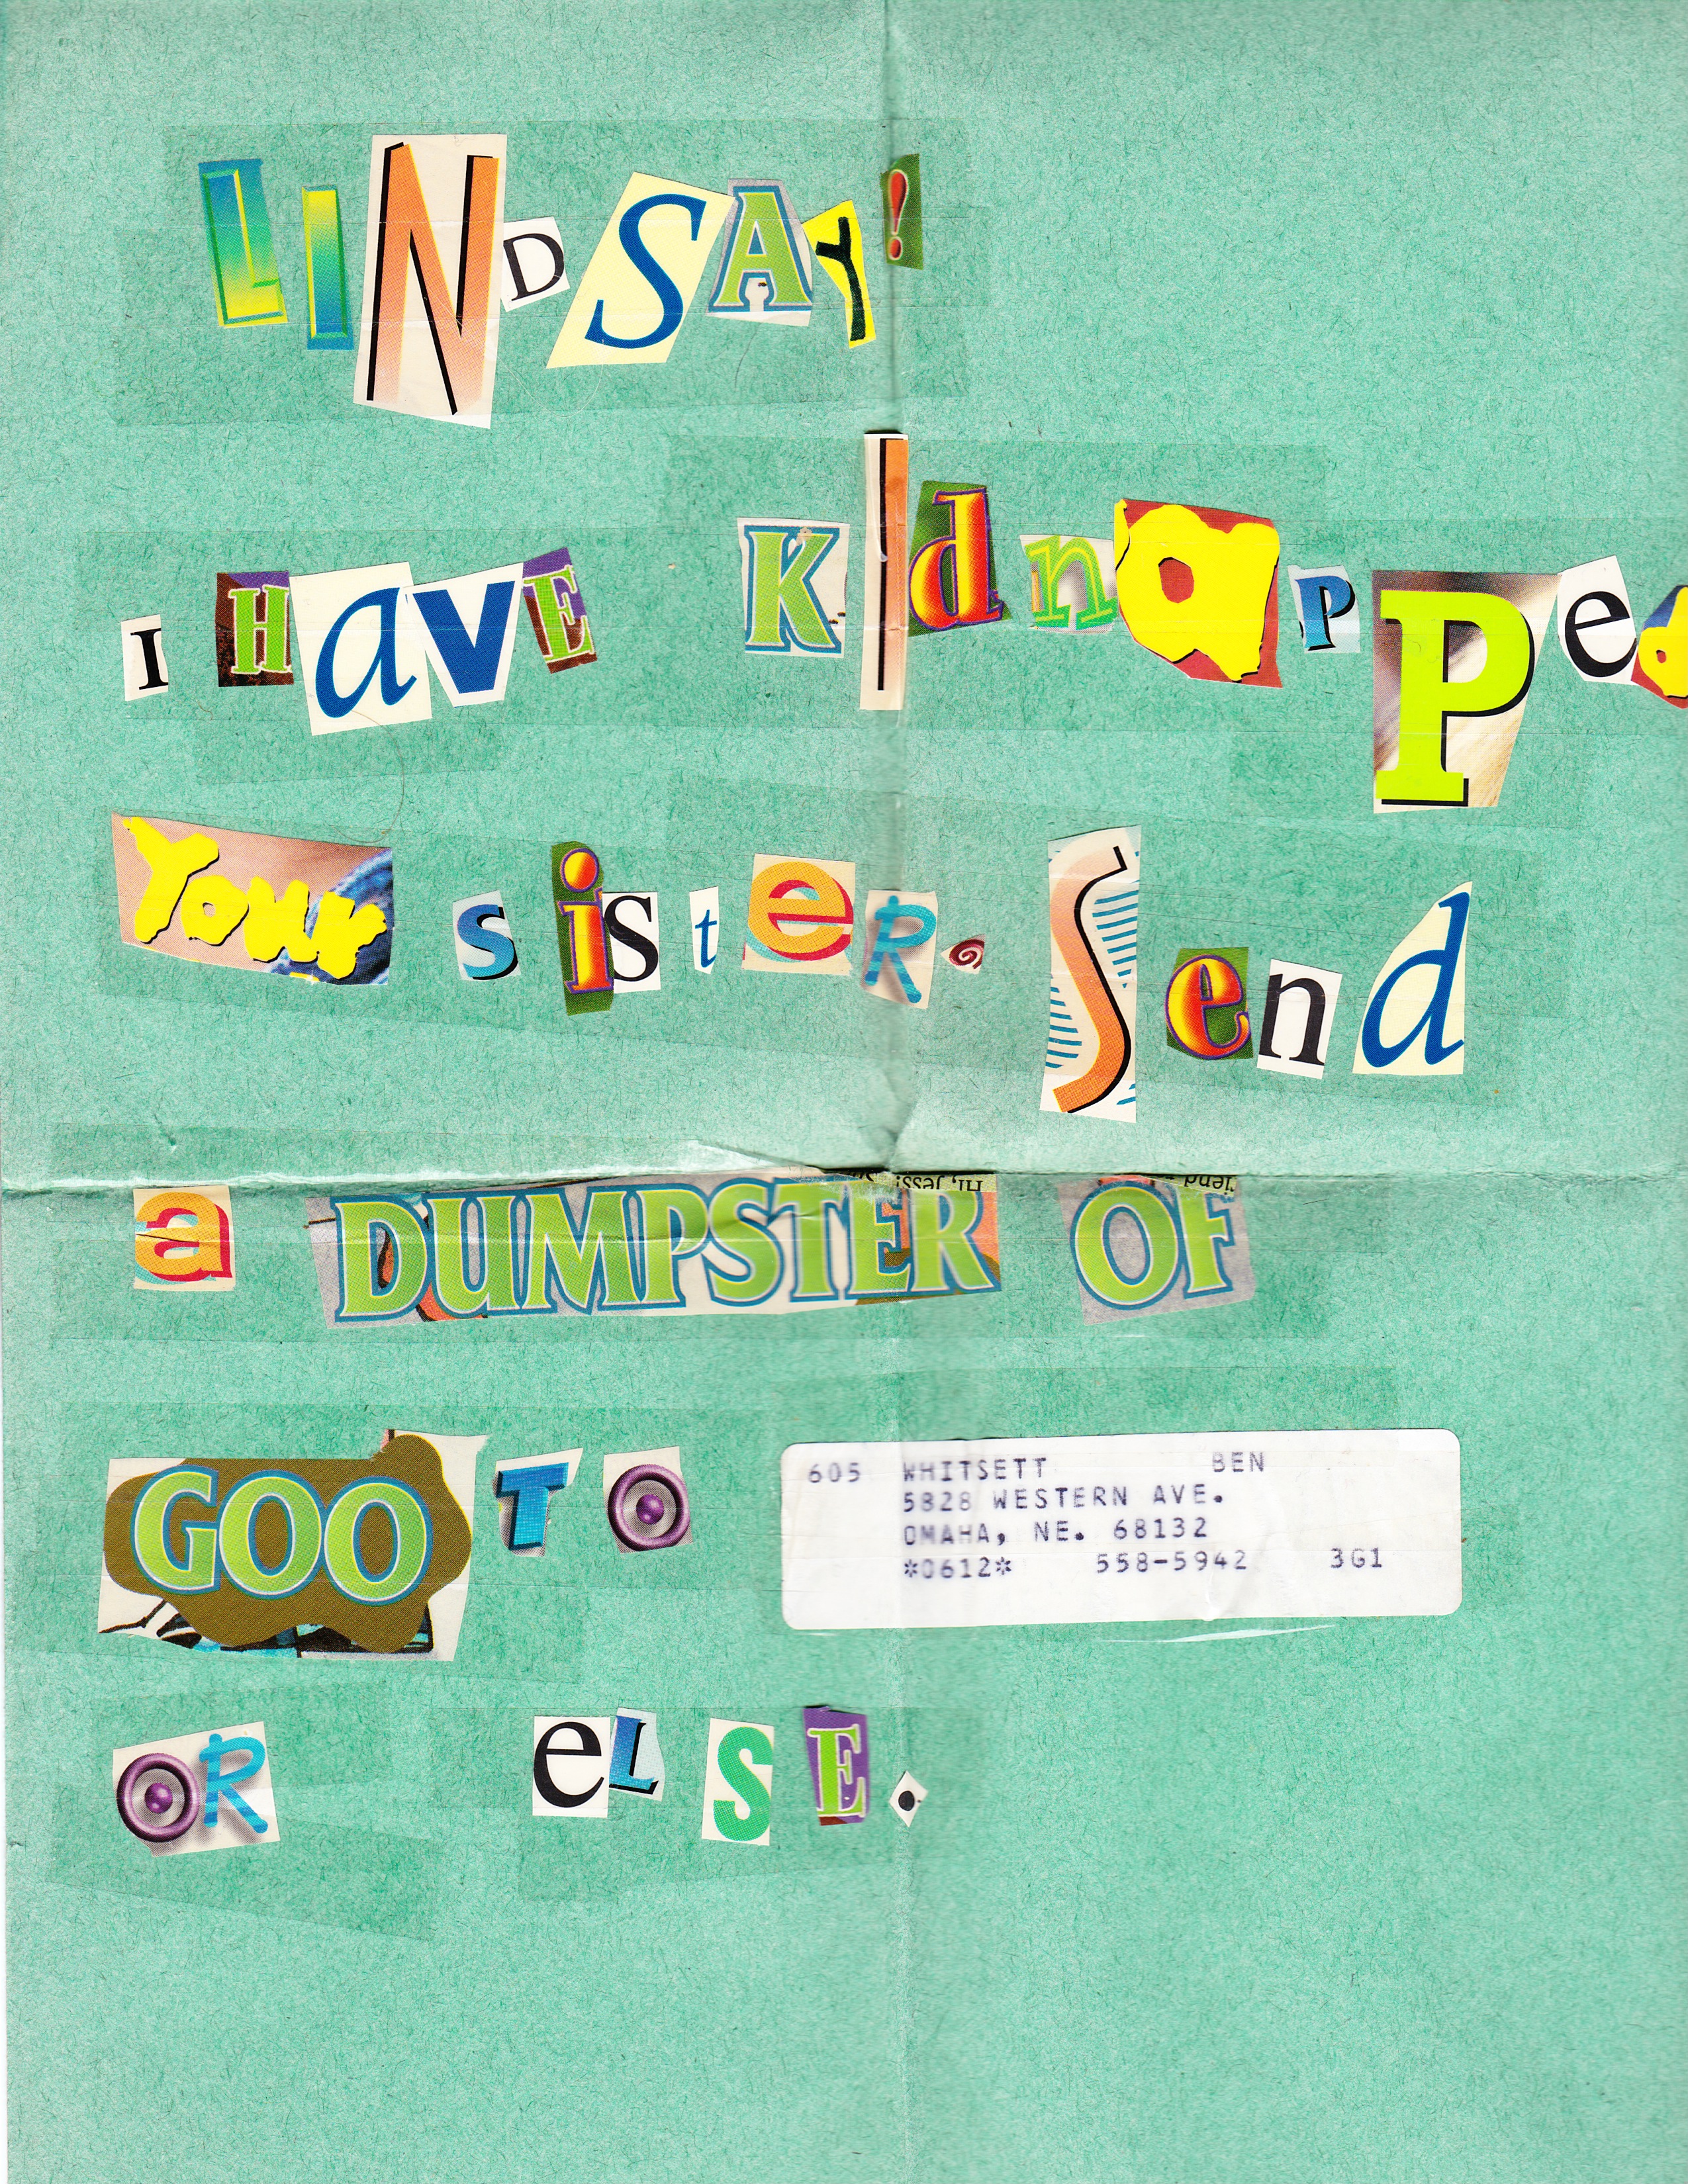 LINDSAY!
I HavE KIdnapPed
Your sister. Send
a DUMPSTER OF
Hi, Jess!
iend
GOO TO
605 WHITSETT BEN
5828 WESTERN AVE.
OMAHA, NE. 68132
*0612* 558-5942 3G1
OR eLSE.